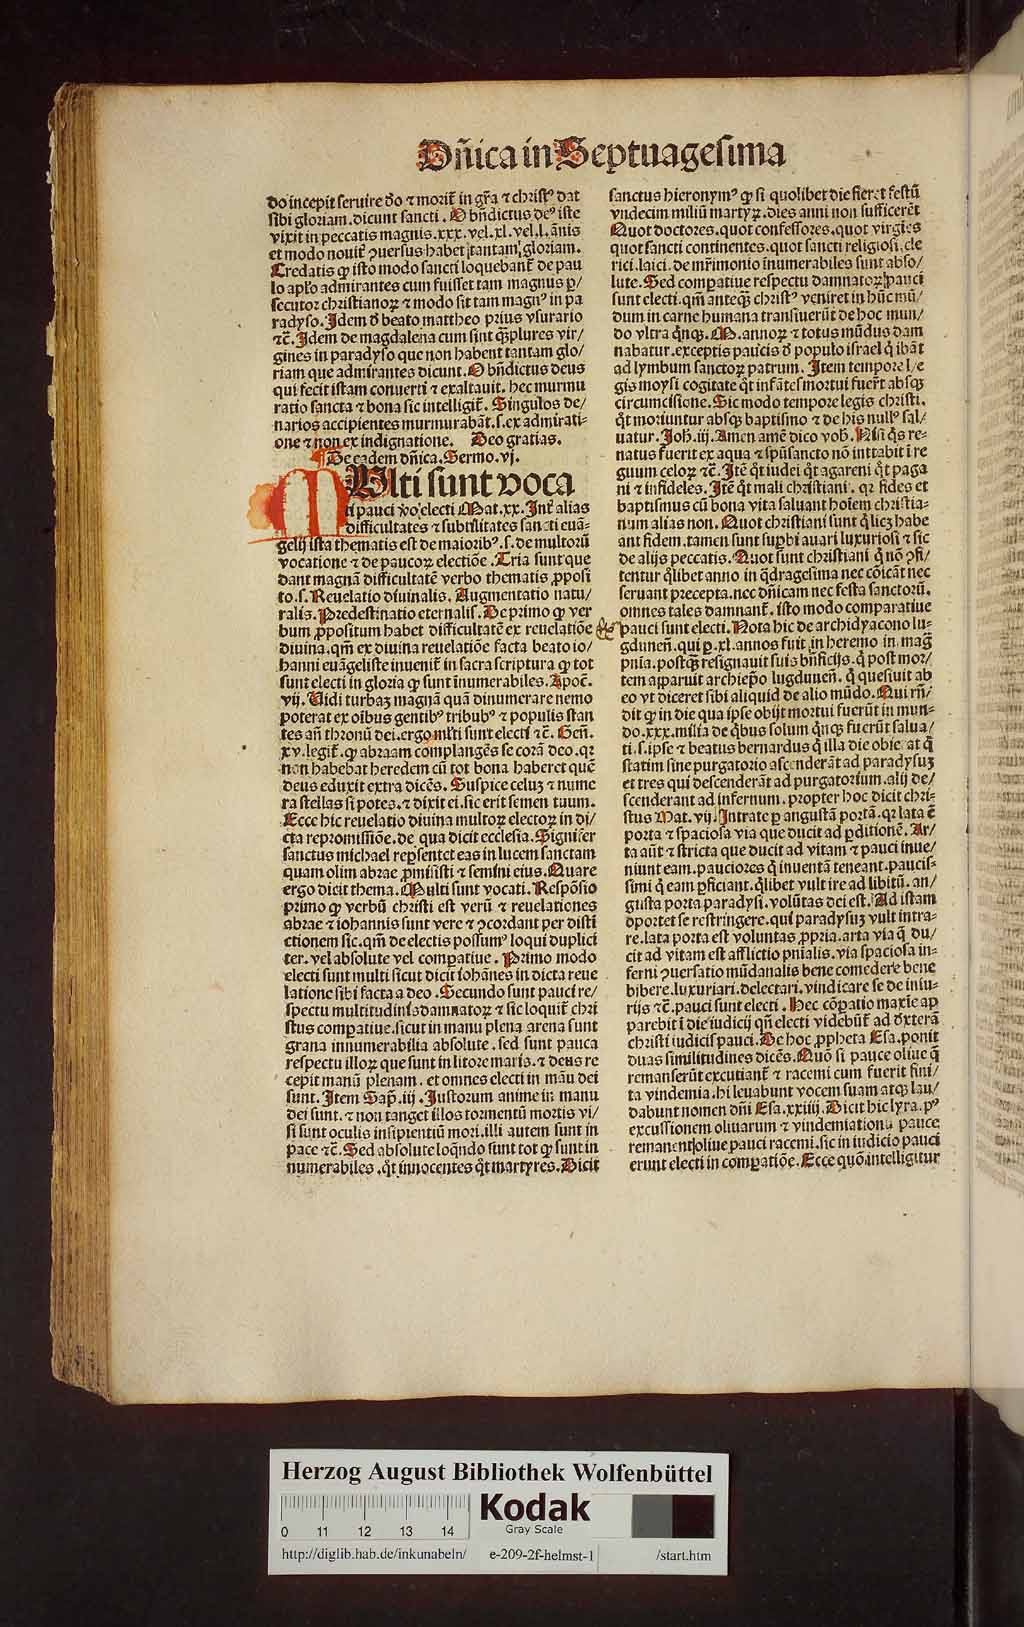 Dn̄ica in Septuagesima
do incepit seruire deo ⁊ morit̄ in gr̄a ⁊ christꝰ dat
sibi gloriam. dicunt sancti. O bn̄dictus deꝰ iste
vixit in peccatis magnis .xxx. vel .xl. vel .l. ānis
et modo nouit̄ ꝯuersus habet tantam gloriam.
Credatis ꝙ isto modo sancti loquebant̄ de pau
lo apl̄o admirantes cum fuisset tam magnus ꝑ/
secutor christianoꝝ ⁊ modo sit tam magnꝰ in pa
radyso. Idem d̄ beato mattheo prius vsurario
⁊c̄. Idem de magdalena cum sint q̄ꝫplures vir/
gines in paradyso que non habent tantam glo/
riam que admirantes dicunt. O bn̄dictus deus
qui fecit istam conuerti ⁊ exaltauit. hec murmu
ratio sancta ⁊ bona sic intelligit̄. Singulos de/
narios accipientes murmurabāt. s. ex admirati-
one ⁊ non ex indignatione. Deo gratias.
De eadem dn̄ica. Sermo. vj.
MUlti sunt voca
ti pauci v̄o electi Mat. xx. Int̄ alias
difficultates ⁊ subtilitates sancti euā-
gelij ista thematis est de maioribꝰ. s. de multorū
vocatione ⁊ de paucoꝝ electiōe. Tria sunt que
dant magnā difficultatē verbo thematis ꝓposi
to. s. Reuelatio diuinalis. Augmentatio natu/
ralis. Predestinatio eternalis. De primo ꝙ ver
bum ꝓpositum habet difficultatē ex reuelatiōe
diuina. qm̄ ex diuina reuelatiōe facta beato io/
hanni euāgeliste inuenit̄ in sacra scriptura ꝙ tot
sunt electi in gloria ꝙ sunt īnumerabiles. Apoc̄.
vij. Uidi turbaꝫ magnā quā dinumerare nemo
poterat ex oībus gentibꝰ tribubꝰ ⁊ populis stan
tes an̄ thronū dei. ergo ml̄ti sunt electi ⁊c̄. Gen̄.
xv. legit̄. ꝙ abraam complangēs se corā deo. qꝛ
non habebat heredem cū tot bona haberet quē
deus eduxit extra dicēs. Suspice celuꝫ ⁊ nume
ra stellas si potes. ⁊ dixit ei. sic erit semen tuum.
Ecce hic reuelatio diuina multoꝝ electoꝝ in di/
cta repromissiōe. de qua dicit ecclesia. Signifer
sanctus michael rep̄sentet eas in lucem sanctam
quam olim abrae ꝓmisisti ⁊ semini eius. Quare
ergo dicit thema. Multi sunt vocati. Respōsio
primo ꝙ verbū christi est verū ⁊ reuelationes
abrae ⁊ iohannis sunt vere ⁊ ꝯcordant per disti
ctionem sic. qm̄ de electis possumꝰ loqui duplici
ter. vel absolute vel comꝑatiue. Primo modo
electi sunt multi sicut dicit iohānes in dicta reue
latione sibi facta a deo. Secundo sunt pauci re/
spectu multitudinis damnatoꝝ ⁊ sic loquit̄ chri
stus comꝑatiue. sicut in manu plena arena sunt
grana innumerabilia absolute. sed sunt pauca
respectu illoꝝ que sunt in litore maris. ⁊ deus re
cepit manū plenam. et omnes electi in māu dei
sunt. Item Sap̄. iij. Justorum anime in manu
dei sunt. ⁊ non tanget illos tormentū mortis vi/
si sunt oculis insipientiū mori. illi autem sunt in
pace ⁊c̄. Sed absolute loqn̄do sunt tot ꝙ sunt in
numerabiles. q̄t innocentes q̄t martyres. Dicit
sanctus hieronymꝰ ꝙ si quolibet die fieret festū
vndecim miliū martyꝝ. dies anni non sufficerēt
Quot doctores. quot confessores. quot virgīes
quot sancti continentes. quot sancti religiosi. cle
rici. laici. de mr̄imonio īnumerabiles sunt abso/
lute. Sed comꝑatiue respectu damnatoꝝ pauci
sunt electi. qm̄ anteq̄ꝫ christꝰ veniret in hūc mū/
dum in carne humana transiuerūt de hoc mun/
do vltra q̄nqꝫ. M. annoꝝ ⁊ totus mūdus dam
nabatur. exceptis paucis d̄ populo israel q̄ ibāt
ad lymbum sanctoꝝ patrum. Item tempore le
gis moysi cogitate q̄t infātes mortui fuer̄t absqꝫ
circumcisione. Sic modo tempore legis christi.
q̄t moriuntur absqꝫ baptismo ⁊ de his nullꝰ sal/
uatur. Joh̄. iij. Amen amē dico vob̄. Nisi q̄s re-
natus fuerit ex aqua ⁊ spūsancto nō inttabit ī re
guum celoꝝ ⁊c̄. Itē q̄t iudei q̄t agareni q̄t paga
ni ⁊ infideles. Itē q̄t mali christiani. qꝛ fides et
baptismus cū bona vita saluant hoīem christia-
num alias non. Quot christiani sunt q̄ licꝫ habe
ant fidem. tamen sunt suꝑbi auari luxuriosi ⁊ sic
de alijs peccatis. Quot sunt christiani q̄ nō ꝯfi/
tentur q̄libet anno in q̄dragesima nec cōicāt nec
seruant precepta. nec dn̄icam nec festa sanctorū.
omnes tales damnant̄. isto modo comparatiue
pauci sunt electi. Nota hic de archidyacono lu-
gdunen̄. qui ꝑ .xl. annos fuit in heremo in maḡ
pn̄ia. postq̄ꝫ resignauit suis bn̄ficijs. q̄ post mor/
tem apparuit archiep̄o lugdunen̄. q̄ quesiuit ab
eo vt diceret sibi aliquid de alio mūdo. Qui rn̄/
dit ꝙ in die qua ipse obijt mortui fuerūt in mun-
do .xxx. milia de qᷣbus solum q̄nqꝫ fuerūt salua/
ti. s. ipse ⁊ beatus bernardus q̄ illa die obierat q̄
statim sine purgatorio ascenderāt ad paradysuꝫ
et tres qui descenderāt ad purgatorium. alij de/
scenderant ad infernum. propter hoc dicit chri-
stus Mat. vij. Intrate ꝑ angustā portā. qꝛ lata ē
porta ⁊ spaciosa via que ducit ad ꝑditionē. Ar/
ta aūt ⁊ stricta que ducit ad vitam ⁊ pauci inue/
niunt eam. pauciores q̄ inuentā teneant. paucis-
simi q̄ eam ꝑficiant. q̄libet vult ire ad libitū. an/
gusta porta paradysi. volūtas dei est. Ad istam
oportet se restringere. qui paradysuꝫ vult intra-
re. lata porta est voluntas ꝓpria. arta via q̄ du/
cit ad vitam est afflictio pn̄ialis. via spaciosa in-
ferni ꝯuersatio mūdanalis bene comedere bene
bibere. luxuriari. delectari. vindicare se de iniu-
rijs ⁊c̄. pauci sunt electi. Hec cōꝑatio maxīe ap
parebit ī die iudicij qn̄ electi videbūt̄ ad dexterā
christi iudicis pauci. De hoc ꝓpheta Esa. ponit
duas similitudines dicēs. Quō si pauce oliue q̄
remanserūt excutiant̄ ⁊ racemi cum fuerit fini/
ta vindemia. hi leuabunt vocem suam atqꝫ lau/
dabunt nomen dn̄i Esa. xxiiij. Dicit hic lyra. pꝰ
excussionem oliuarum ⁊ vindemiationū pauce
remanent oliue pauci racemi. sic in iudicio pauci
erunt electi in comꝑatiōe. Ecce quō intelligitur
Herzog August Bibliothek Wolfenbüttel
Kodak
Gray Scale
0 11 12 13 14
http://diglib.hab.de/inkunabeln/ e-209-2f-helmst-1 /start.htm